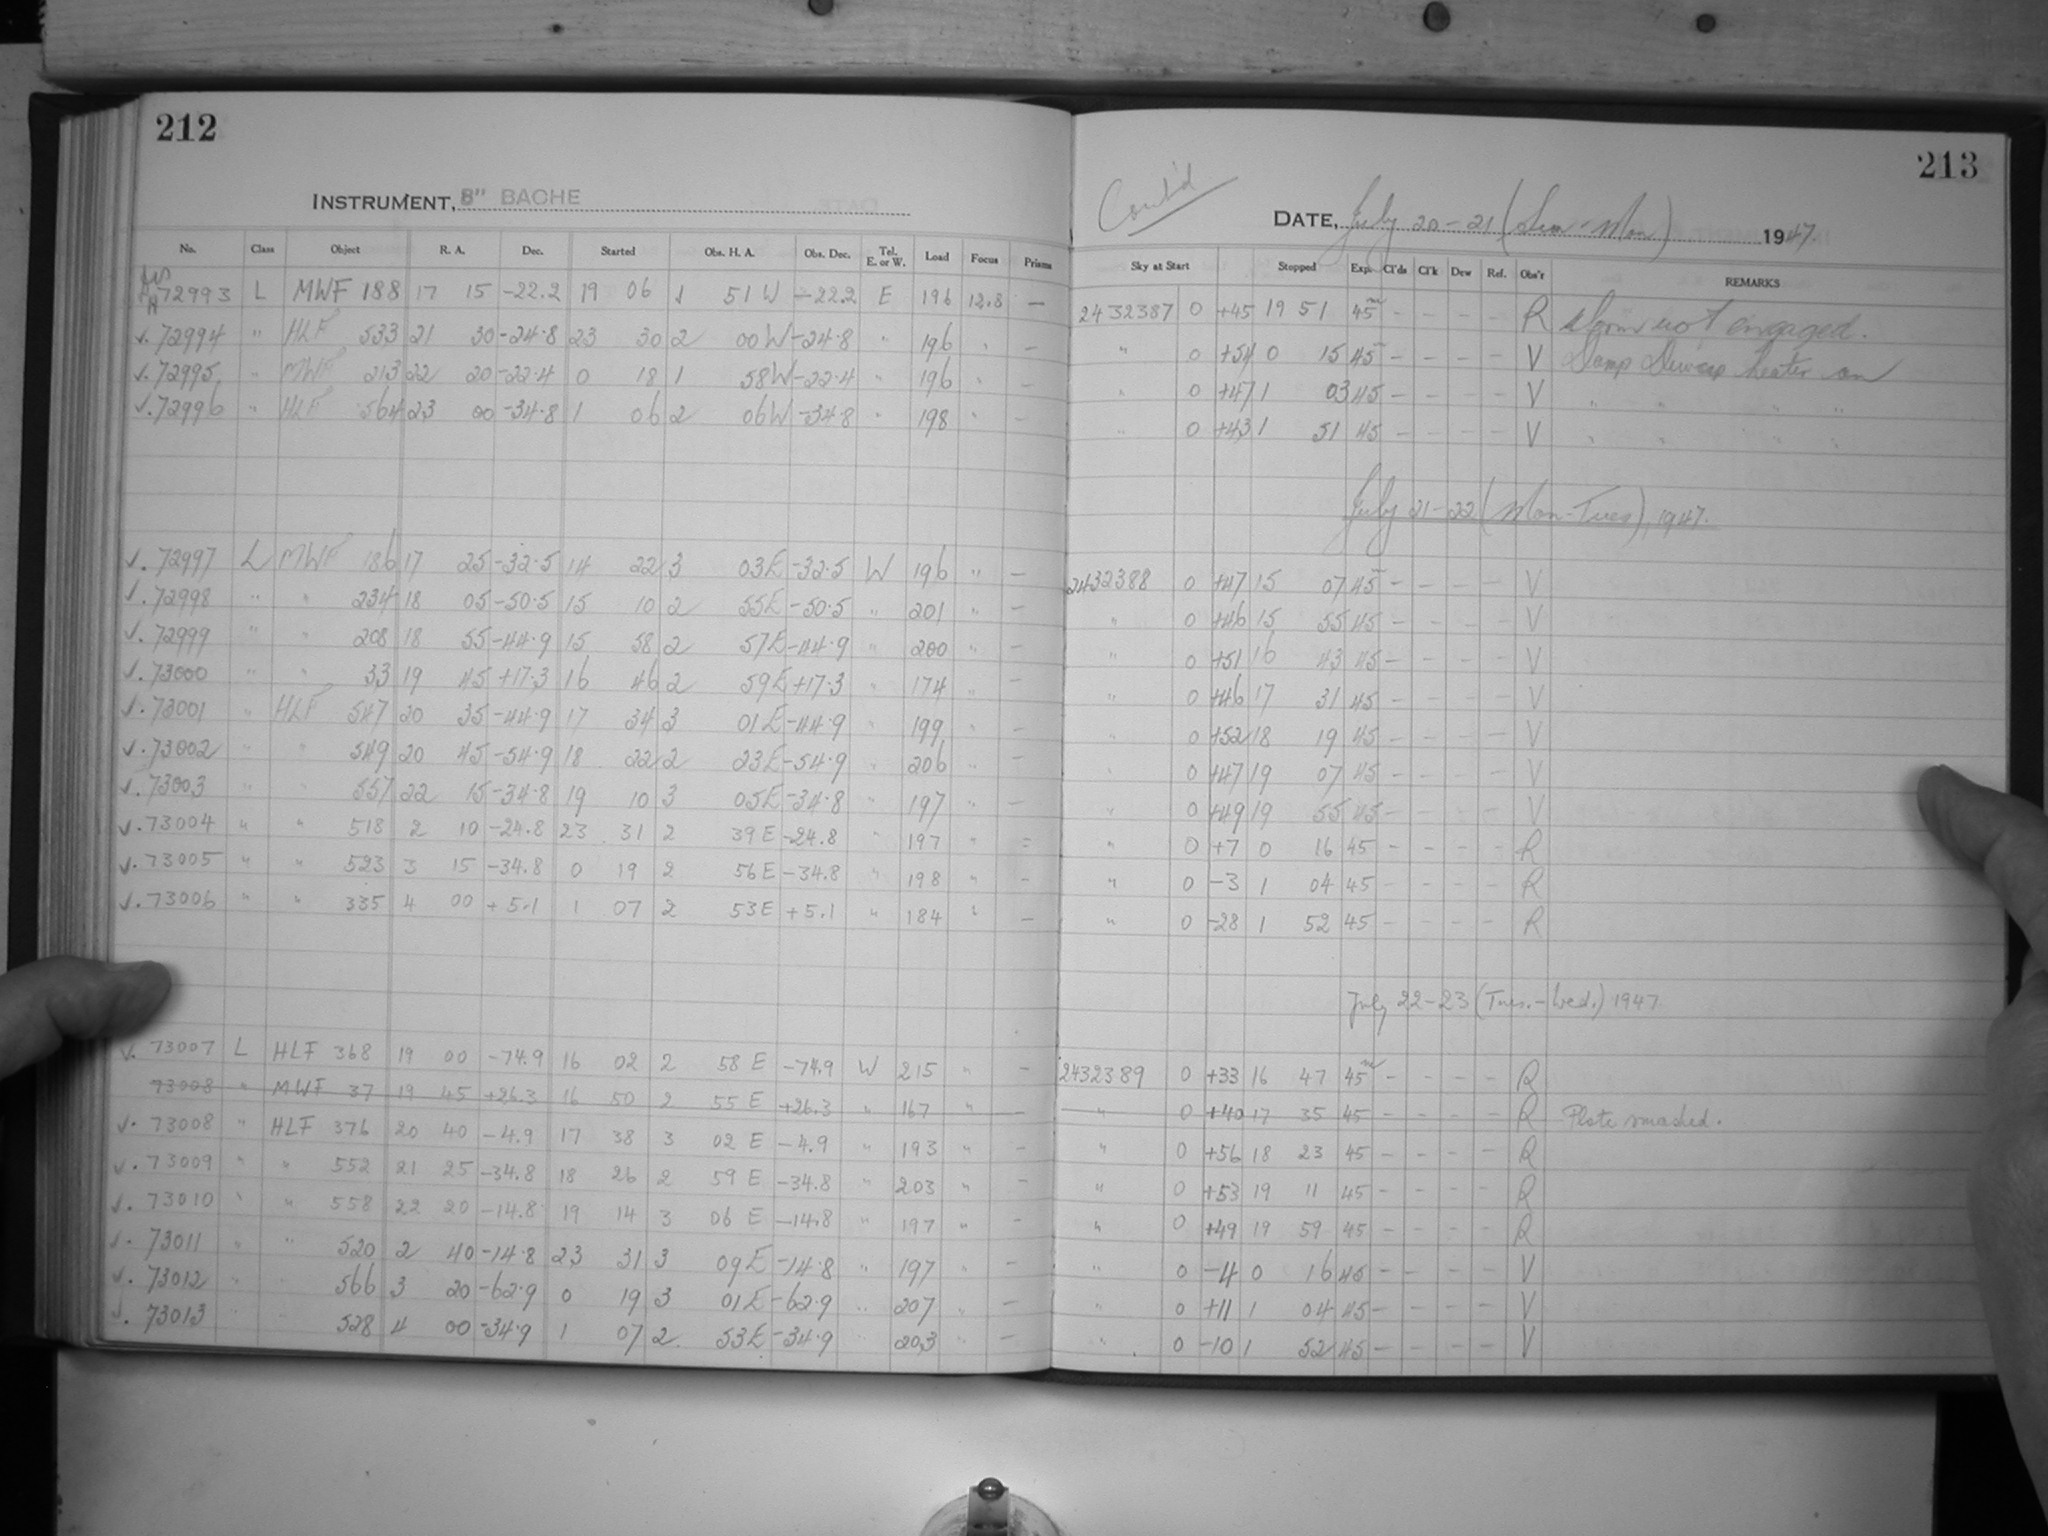 212
INSTRUMENT, 8" BACHE
No. Class Object R. A. Dec. Started Obs. H. A. Obs. Dec. Tel. E. or W. Load Focus Prisms
72993 L MWF 188 17 15 -22.2 19 06 1 51 W -22.2 E 196 12.8 —
√. 72994 " HLF 533 21 30 -24.8 23 30 2 00 W -24.8 " 196 " —
√. 72995 " MWF 213 22 20 -22.4 0 18 1 58 W -22.4 " 196 " —
√. 72996 " HLF 564 23 00 -34.8 1 06 2 06 W -34.8 " 198 " —
√. 72997 L MWF 186 17 25 -32.5 14 22 3 03 E -32.5 W 196 " —
√. 72998 " " 234 18 05 -50.5 15 10 2 55 E -50.5 " 201 " —
√. 72999 " " 208 18 55 -44.9 15 58 2 57 E -44.9 " 200 " —
√. 73000 " " 33 19 45 +17.3 16 46 2 59 E +17.3 " 174 " —
√. 73001 " HLF 547 20 35 -44.9 17 34 3 01 E -44.9 " 199 " —
√. 73002 " " 549 20 45 -54.9 18 22 2 23 E -54.9 " 206 " —
√. 73003 " " 557 22 15 -34.8 19 10 3 05 E -34.8 " 197 " —
√. 73004 " " 518 2 10 -24.8 23 31 2 39 E -24.8 " 197 " =
√. 73005 " " 523 3 15 -34.8 0 19 2 56 E -34.8 " 198 " —
√. 73006 " " 335 4 00 +5.1 1 07 2 53 E +5.1 " 184 " —
√. 73007 L HLF 368 19 00 -74.9 16 02 2 58 E -74.9 W 215 " —
73008 " MWF 37 19 45 +26.3 16 50 2 55 E +26.3 " 167 " —
√. 73008 " HLF 376 20 40 -4.9 17 38 3 02 E -4.9 " 193 " —
√. 73009 " " 552 21 25 -34.8 18 26 2 59 E -34.8 " 203 " —
√. 73010 " " 558 22 20 -14.8 19 14 3 06 E -14.8 " 197 " —
√. 73011 " " 520 2 40 -14.8 23 31 3 09 E -14.8 " 197 " —
√. 73012 " " 566 3 20 -62.9 0 19 3 01 E -62.9 " 207 " —
√. 73013 " " 528 4 00 -34.9 1 07 2 53 E -34.9 " 203 " —
213
Cont'd
DATE, July 20-21 (Sun-Mon) 1947.
Sky at Start Stopped Exp. Cl'ds Cl'k Dew Ref. Obs'r REMARKS
2432387 0 +45 19 51 45m - - - - R Alarm not engaged.
" 0 +54 0 15 45m - - - - V Damp Dewcap heater on
" 0 +47 1 03 45 - - - - V " " " "
" 0 +43 1 51 45 - - - - V " " " "
July 21-22 (Mon-Tues), 1947.
2432388 0 +47 15 07 45m - - - - V
" 0 +46 15 55 45 - - - - V
" 0 +51 16 43 45 - - - - V
" 0 +46 17 31 45 - - - - V
" 0 +52 18 19 45 - - - - V
" 0 +47 19 07 45 - - - - V
" 0 +49 19 55 45 - - - - V
" 0 +7 0 16 45 - - - - R
" 0 -3 1 04 45 - - - - R
" 0 -28 1 52 45 - - - - R
July 22-23 (Tues.-Wed.) 1947.
2432389 0 +33 16 47 45m - - - - R
" 0 +40 17 35 45 - - - - R Plate smashed.
" 0 +56 18 23 45 - - - - R
" 0 +53 19 11 45 - - - - R
" 0 +49 19 59 45 - - - - R
" 0 -4 0 16 45 - - - - V
" 0 +11 1 04 45 - - - - V
" 0 -10 1 52 45 - - - - V